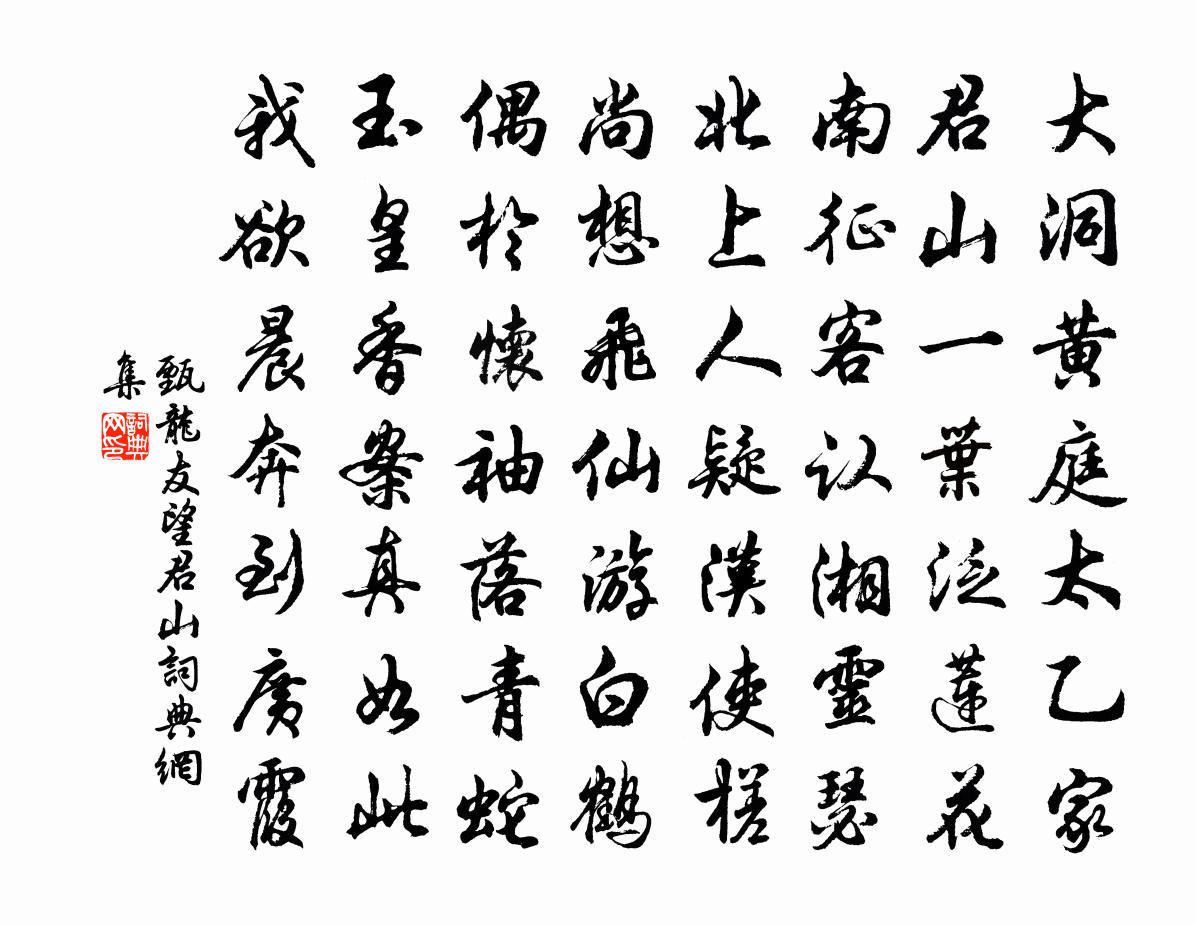 大洞黄庭太乙家
君山一葉泛蓮花
南征客认湘靈瑟
北上人疑漢使槎
尚想飛仙游白鶴
偶於懷袖落青蛇
玉皇香案真如此
我欲晨奔到廣霞
甄龍友望君山詞典網
集
詞典
网印